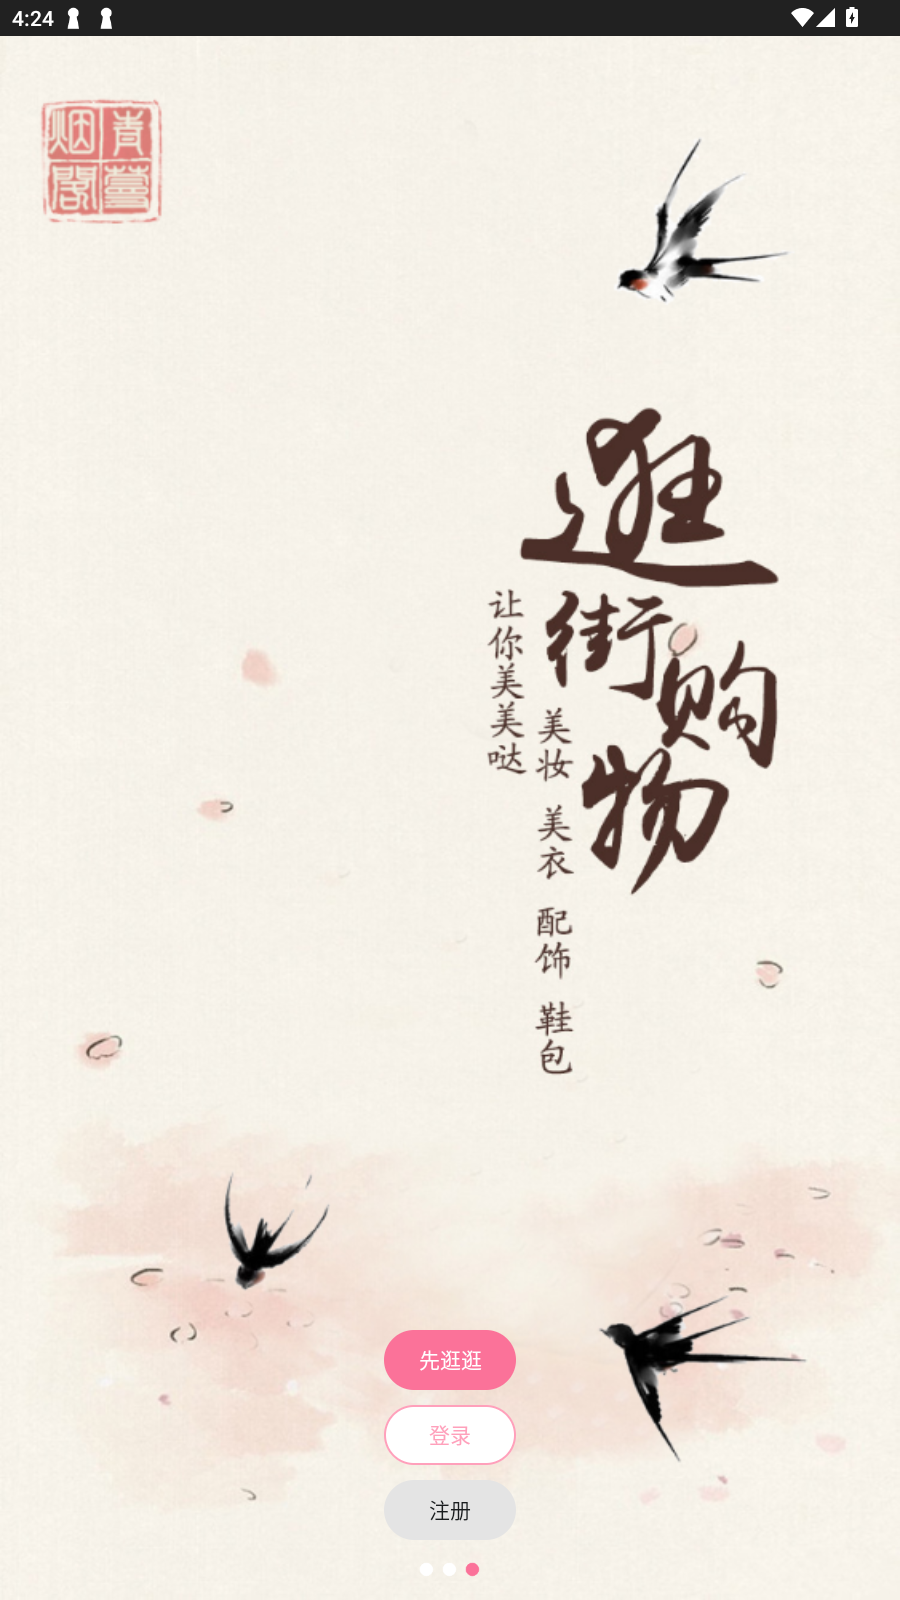 4:24
青烟
薹閣
逛
街
购
物
让你美美哒
美妆 美衣 配饰 鞋包
先逛逛
登录
注册